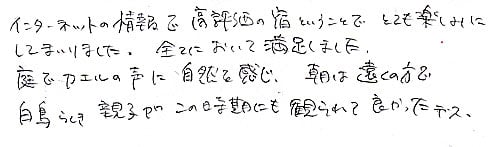 インターネットの情報で高評価の宿ということでとても楽しみに
してまいりました。全てにおいて満足しました。
庭でカエルの声に自然を感じ、朝は遠くの方で
白鳥らしき親子がこの時期にも観られて良かったデス。